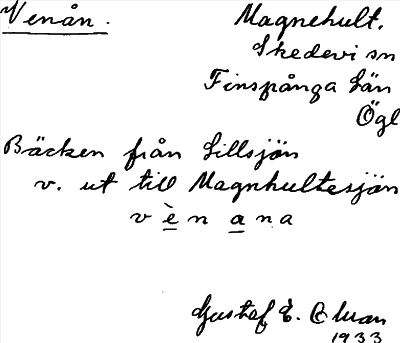 Venån. Magnehult.
Skedevi sn
Finspånga län
Ögl
Bäcken från Lillsjön
v. ut till Magnhultesjön
vè n a na
Gustaf E.
1933